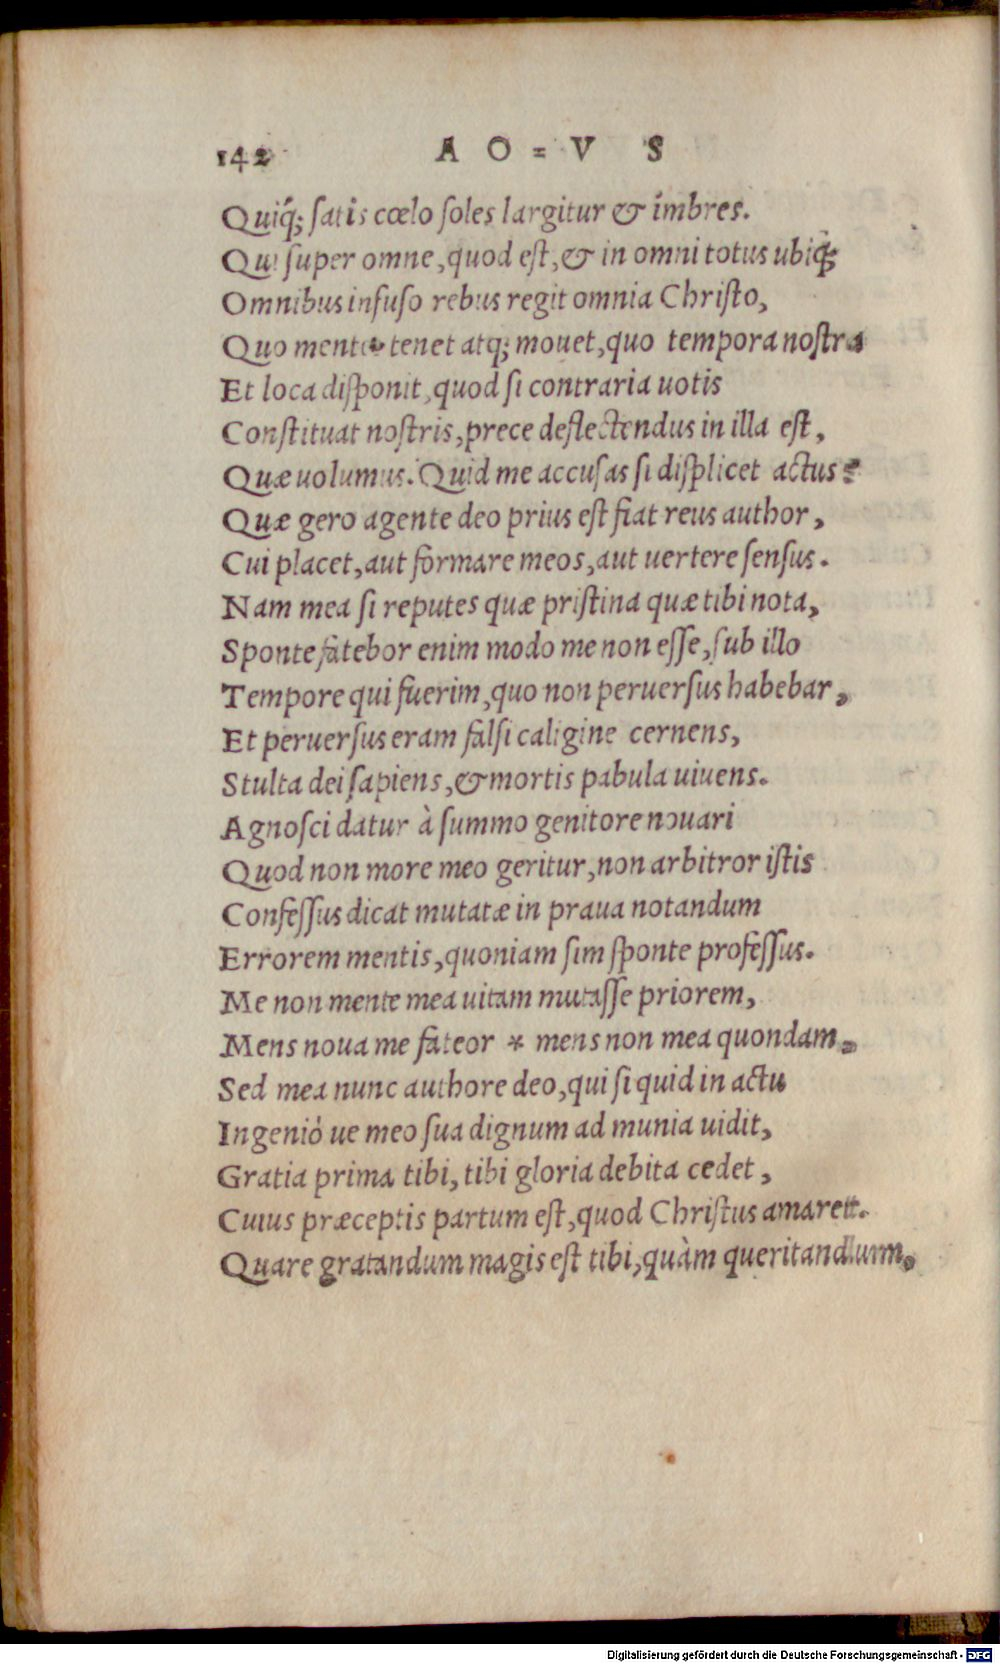 142 A O = V S
Quiq́; ſatis cœlo ſoles largitur & imbres.
Qui ſuper omne, quod eſt, & in omni totus ubiq́;
Omnibus infuſo rebus regit omnia Chriſto,
Quo mente tenet atq; mouet, quo tempora noſtra
Et loca diſponit, quod ſi contraria uotis
Conſtituat noſtris, prece deflectendus in illa eſt,
Quæ uolumus. Quid me accuſas ſi diſplicet actus?
Quæ gero agente deo prius eſt fiat reus author,
Cui placet, aut formare meos, aut uertere ſenſus.
Nam mea ſi reputes quæ priſtina quæ tibi nota,
Sponte fatebor enim modo me non eſſe, ſub illo
Tempore qui fuerim, quo non peruerſus habebar,
Et peruerſus eram falſi caligine cernens,
Stulta dei ſapiens, & mortis pabula uiuens.
Agnoſci datur à ſummo genitore nouari
Quod non more meo geritur, non arbitror iſtis
Confeſſus dicat mutatæ in praua notandum
Errorem mentis, quoniam ſim ſponte profeſſus.
Me non mente mea uitam mutaſſe priorem,
Mens noua me fateor * mens non mea quondam,
Sed mea nunc authore deo, qui ſi quid in actu
Ingenió ue meo ſua dignum ad munia uidit,
Gratia prima tibi, tibi gloria debita cedet,
Cuius præceptis partum eſt, quod Chriſtus amaret.
Quare gratandum magis eſt tibi, quàm queritandum,
Digitalisierung gefördert durch die Deutsche Forschungsgemeinschaft - DFG